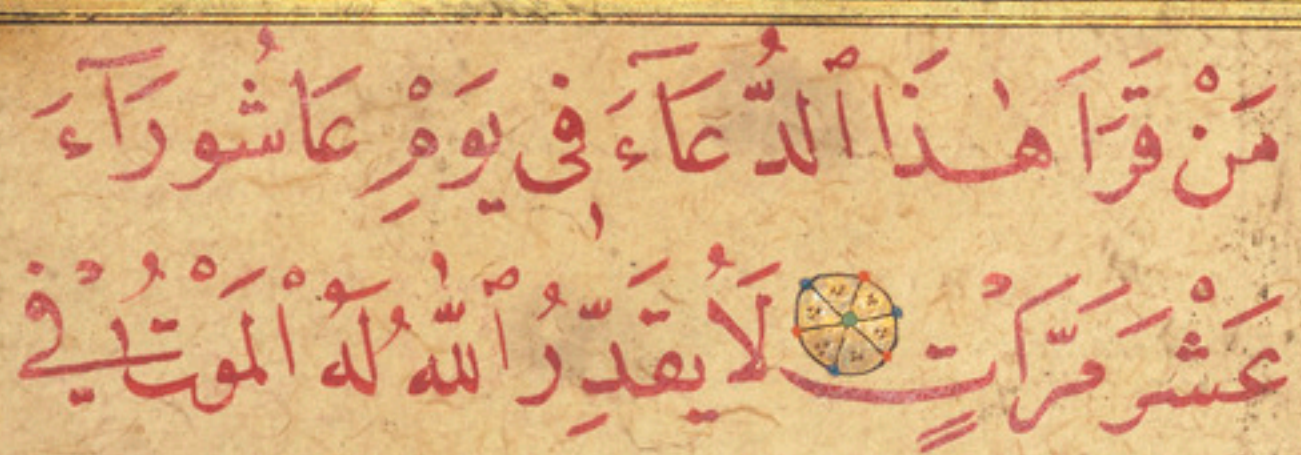 مَنْ قَرَاَ هٰذَا ٱلدُّعَآءَ فِى يَوْمِ عَاشُورَآءَ
عَشْرَ مَرَّاتٍ لَا يُقَدِّرُ ٱللّٰهُ لَهُ الْمَوْتُ فِي